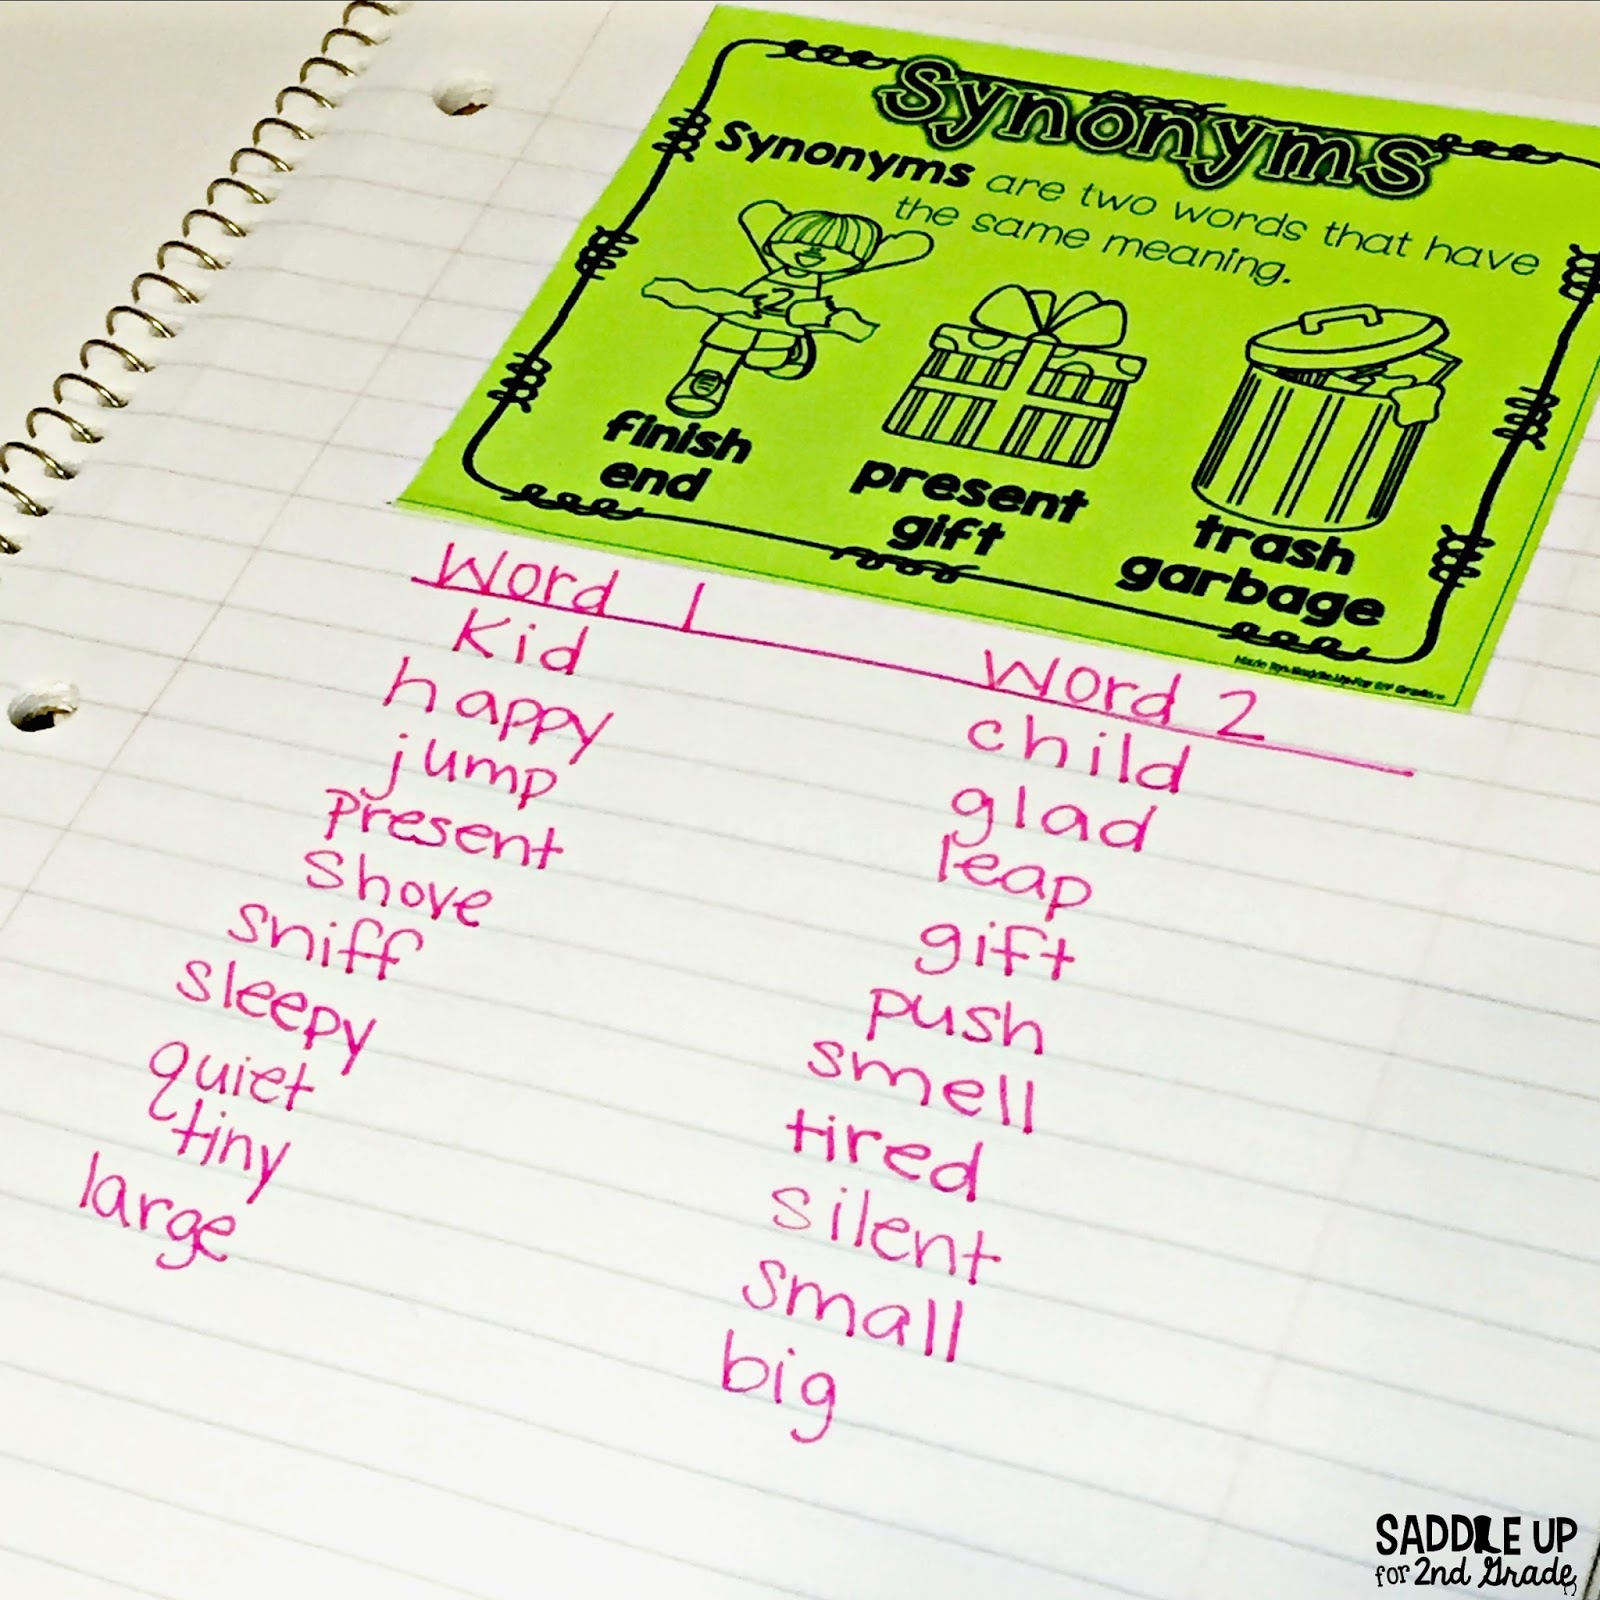 Synonyms
Synonyms are two words that have
the same meaning.
2
finish
end
present
gift
trash
garbage
Word 1 Word 2
Kid child
happy glad
jump leap
present gift
shove push
sniff smell
sleepy tired
quiet silent
tiny small
large big
SADDLE UP
for 2nd Grade